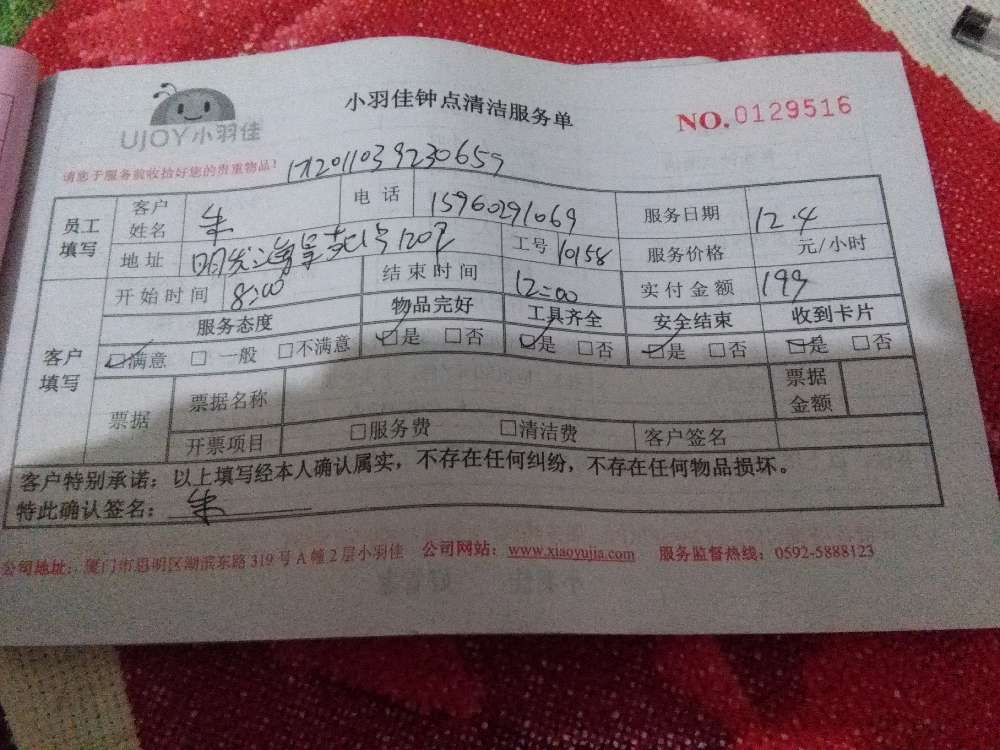 UJOY小羽佳
小羽佳钟点清洁服务单
NO.0129516
请您于服务前收拾好您的贵重物品！
1712011039230659
员工填写 客户姓名 朱 电话 15960291069 服务日期 12.4
地址 明发 号120 工号 10158 服务价格 元/小时
客户填写 开始时间 8:00 结束时间 12:00 实付金额 199
服务态度 物品完好 工具齐全 安全结束 收到卡片
☑满意 □一般 □不满意 ☑是 □否 ☑是 □否 ☑是 □否 ☑是 □否
票据 票据名称 票据金额
开票项目 □服务费 □清洁费 客户签名
客户特别承诺：以上填写经本人确认属实，不存在任何纠纷，不存在任何物品损坏。
特此确认签名：朱
公司地址：厦门市思明区湖滨东路319号A幢2层小羽佳 公司网站：www.xiaoyujia.com 服务监督热线：0592-5888123